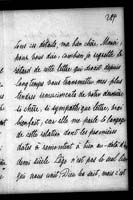 289
tous ces détails, ma bien chère Marie,
pour vous dire, combien je regrette le
retard de cette lettre qui devait depuis
longtemps vous transmettre mes plus
tendres remerciements de votre dernière
si chère, si sympathique lettre, vrai
bienfait, car elle me parle le langage
de cette relation dont les premières
dates à remontent à bien au-delà d'un
demi siècle. L'âge n'est pas le seul lien
qui nous unit; Dieu le sait, mais c'est